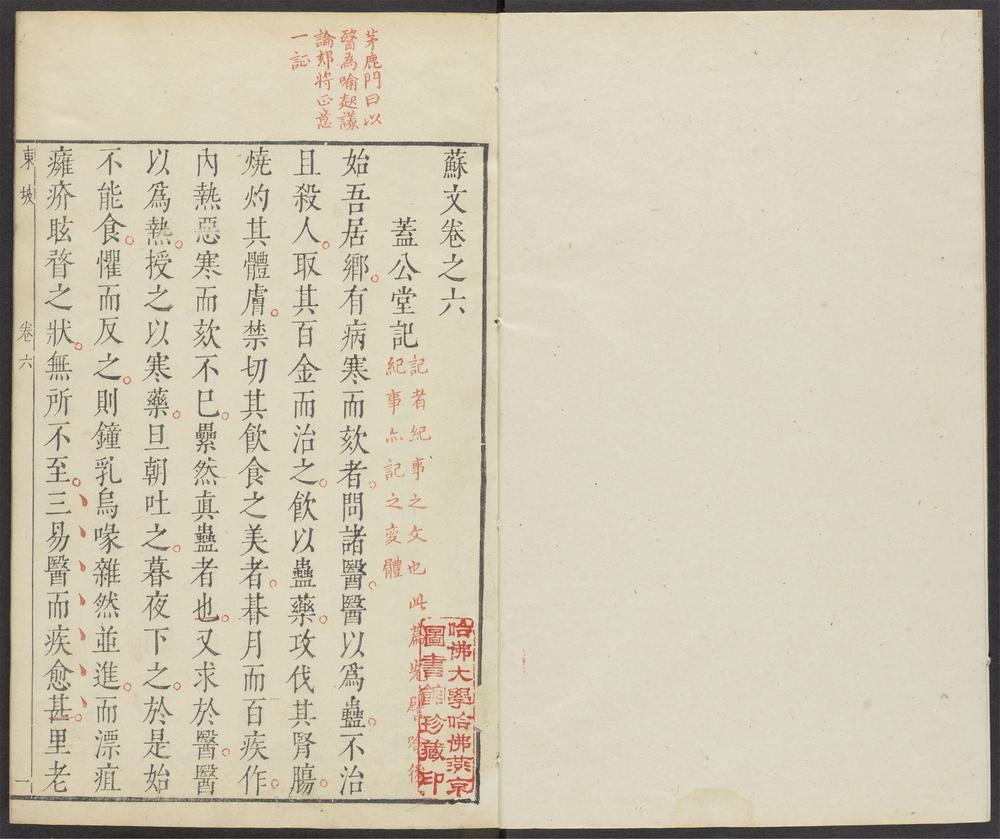 茅鹿門曰以
醫為喻起議
論却將正意
一証
蘇文卷之六
蓋公堂記
記者紀事之文也此篇先譬喻後
紀事亦記之変體
始吾居鄉有病寒而欬者問諸醫醫以爲蠱不治
且殺人取其百金而治之飲以蠱藥攻伐其腎腸
燒灼其體膚禁切其飲食之美者朞月而百疾作
內熱惡寒而欬不已纍然真蠱者也又求於醫醫
以爲熱授之以寒藥旦朝吐之暮夜下之於是始
不能食懼而反之則鐘乳烏喙雜然並進而漂疽
癰疥眩瞀之狀無所不至三易醫而疾愈甚里老
東坡 卷六 一
哈佛大學哈佛燕京
圖書館珍藏印